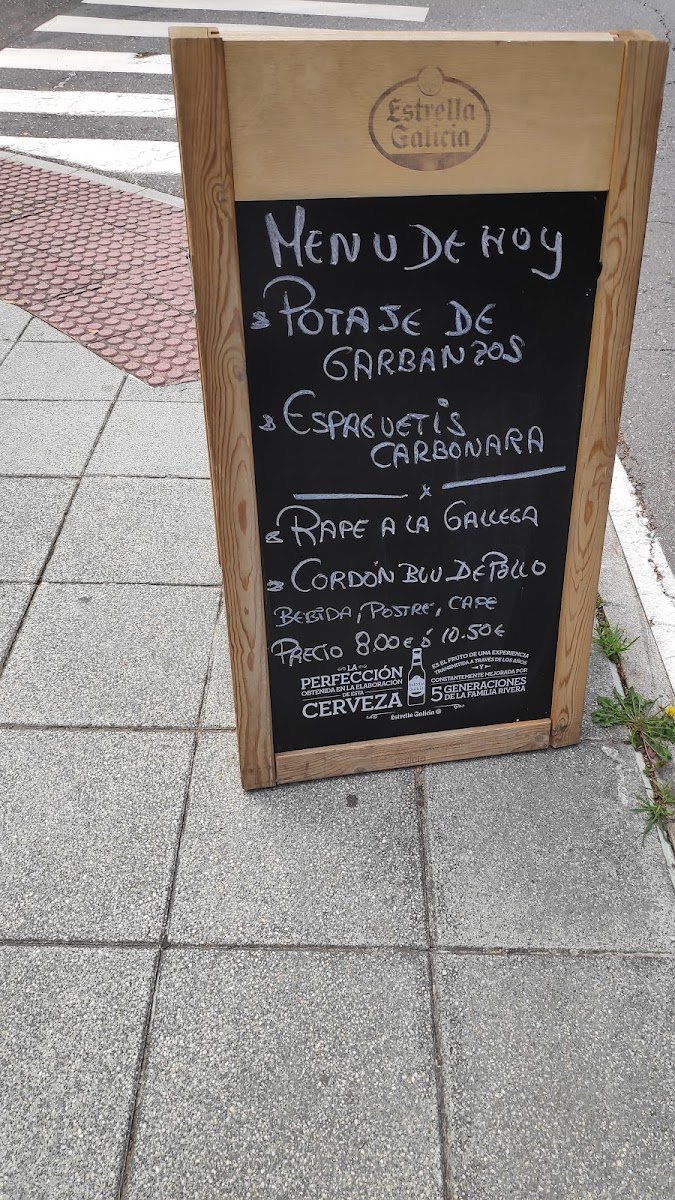 Estrella
Galicia
MENU DE HOY
POTAJE DE
GARBANZOS
ESPAGUETIS
CARBONARA
x
RAPE A LA GALLEGA
CORDÓN BLU DE POLLO
BEBIDA, POSTRE, CAFE
PRECIO 8.00€ ó 10.50€
LA
PERFECCIÓN
OBTENIDA EN LA ELABORACIÓN
DE ESTA
CERVEZA
ES EL FRUTO DE UNA EXPERIENCIA
TRANSMITIDA A TRAVÉS DE LOS AÑOS
Y
CONSTANTEMENTE MEJORADA POR
5 GENERACIONES
DE LA FAMILIA RIVERA
Estrella Galicia